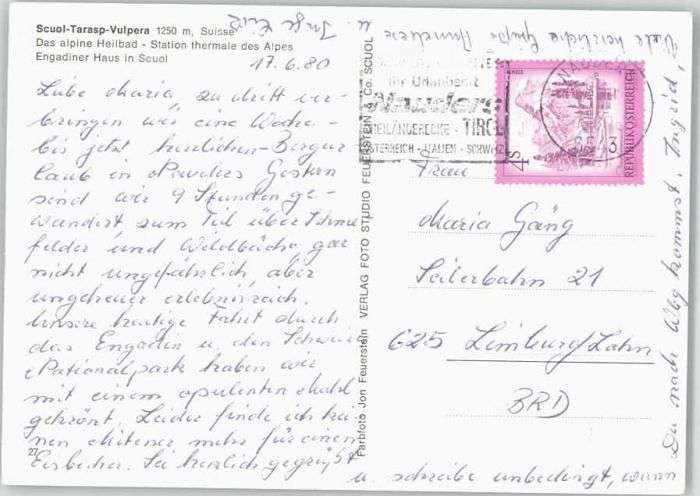 Scuol-Tarasp-Vulpera 1250 m, Suisse
Das alpine Heilbad - Station thermale des Alpes
Engadiner Haus in Scuol
17.6.80
Liebe Maria, zu dritt ver-
bringen wir eine Woche
bis jetzt herrlichen Bergur
laub in Nauders Gestern
sind wir 9 Stunden ge-
wandert zum Teil über Schnee
felder und Wildbäche gar
nicht ungefährlich, aber
ungeheuer erlebnisreich.
Unsere heutige Fahrt durch
das Engadin u. den Schweiz
Nationalpark haben wir
mit einem opulenten Mahl
gekrönt. Leider finde ich kei-
nen Mitesser mehr für einen
Eisbecher. Sei herzlich gegrüßt
u. schreibe unbedingt, wann
Du nach Wbg kommst. Ingrid,
Viele herzliche Grüße Anneliese
u. Inge
27
Farbfoto Jon Feuerstein VERLAG FOTO STUDIO FEUERSTEIN & Co. SCUOL
Ihr Urlaubsziel
Nauders
DREILÄNDERECKE - TIROL
ÖSTERREICH - ITALIEN - SCHWEIZ
NAUDERS
4 S
REPUBLIK ÖSTERREICH
Frau
Maria Gäng
Seilerbahn 21
625 Limburg/Lahn
BRD